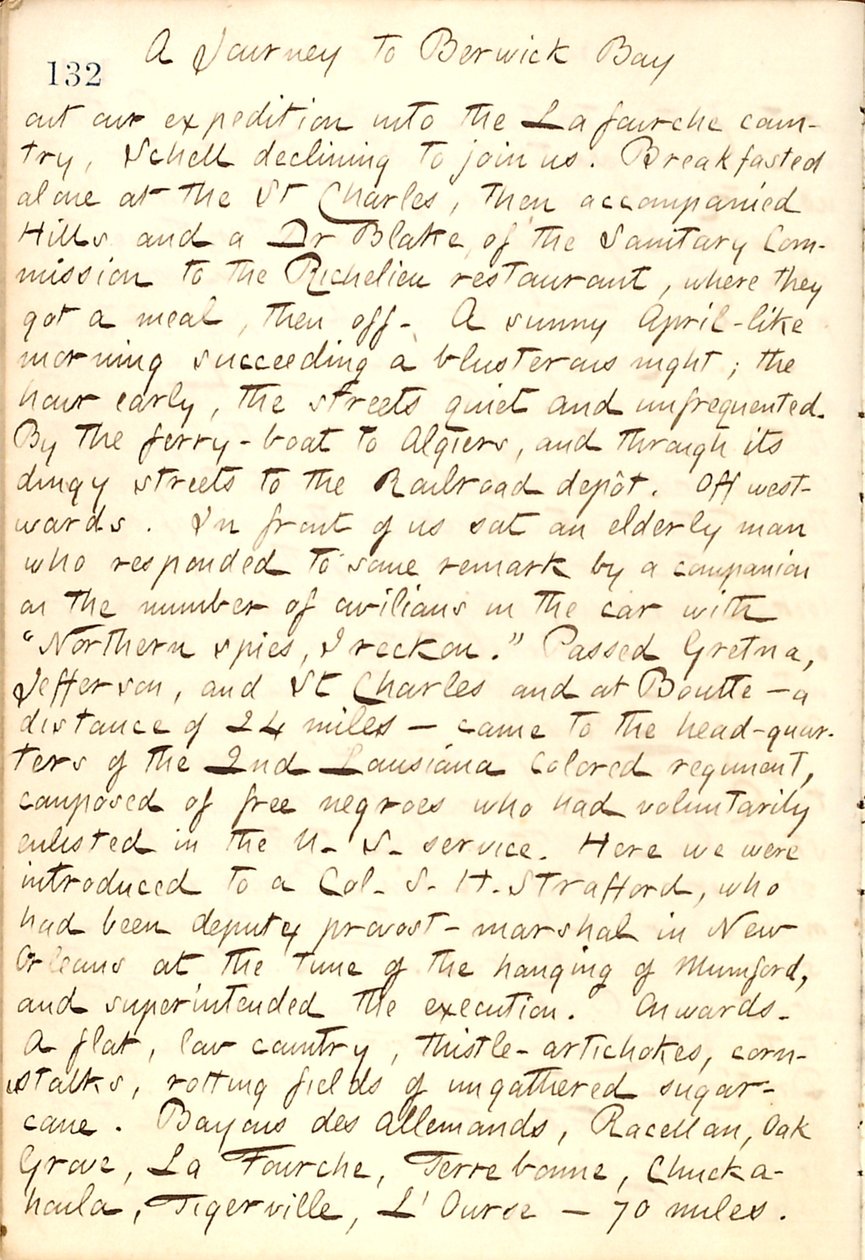 A Journey to Berwick Bay
132
out our expedition into the La fourche coun-
try, Schell declining to join us. Breakfasted
alone at the St Charles, then accompanied
Hills and a Dr Blake, of the Sanitary Com-
mission to the Richelieu restaurant, where they
got a meal, then off. A sunny April-like
morning succeeding a blusterous night; the
hour early, the streets quiet and unfrequented.
By the ferry-boat to Algiers, and through its
dingy streets to the Railroad depôt. Off west-
wards. In front of us sat an elderly man
who responded to some remark by a companion
on the number of civilians in the car with
"Northern spies, I reckon." Passed Gretna,
Jefferson, and St Charles and at Boutte — a
distance of 24 miles — came to the head-quar-
ters of the 2nd Lousiana Colored regiment,
composed of free negroes who had voluntarily
enlisted in the U. S. service. Here we were
introduced to a Col. S. H. Strafford, who
had been deputy provost-marshal in New
Orleans at the time of the hanging of Mumford,
and superintended the execution. Onwards.
A flat, low country, thistle-artichokes, corn-
stalks, rotting fields of ungathered sugar-
cane. Bayous des Allemands, Racelan, Oak
Grove, La Fourche, Terrebonne, Chucka-
houla, Tigerville, L'Ourse — 70 miles.